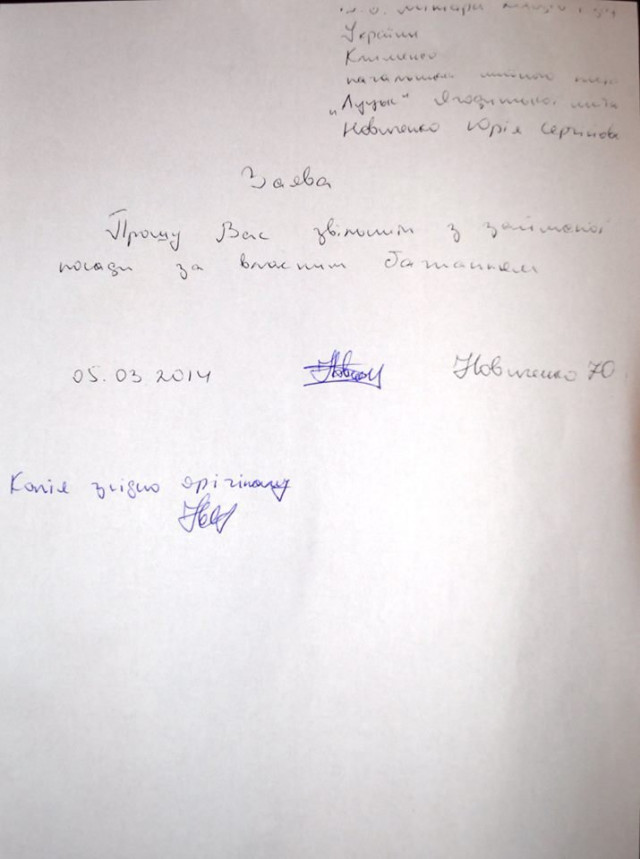 України
Клименко
начальника митного посту
"Луцьк" Ягодинської митн
Новиченко Юрія Сергійов
Заява
Прошу Вас звільнити з займаної
посади за власним бажанням
05.03 2014 Новиченко Ю
Копія згідно оригіналу